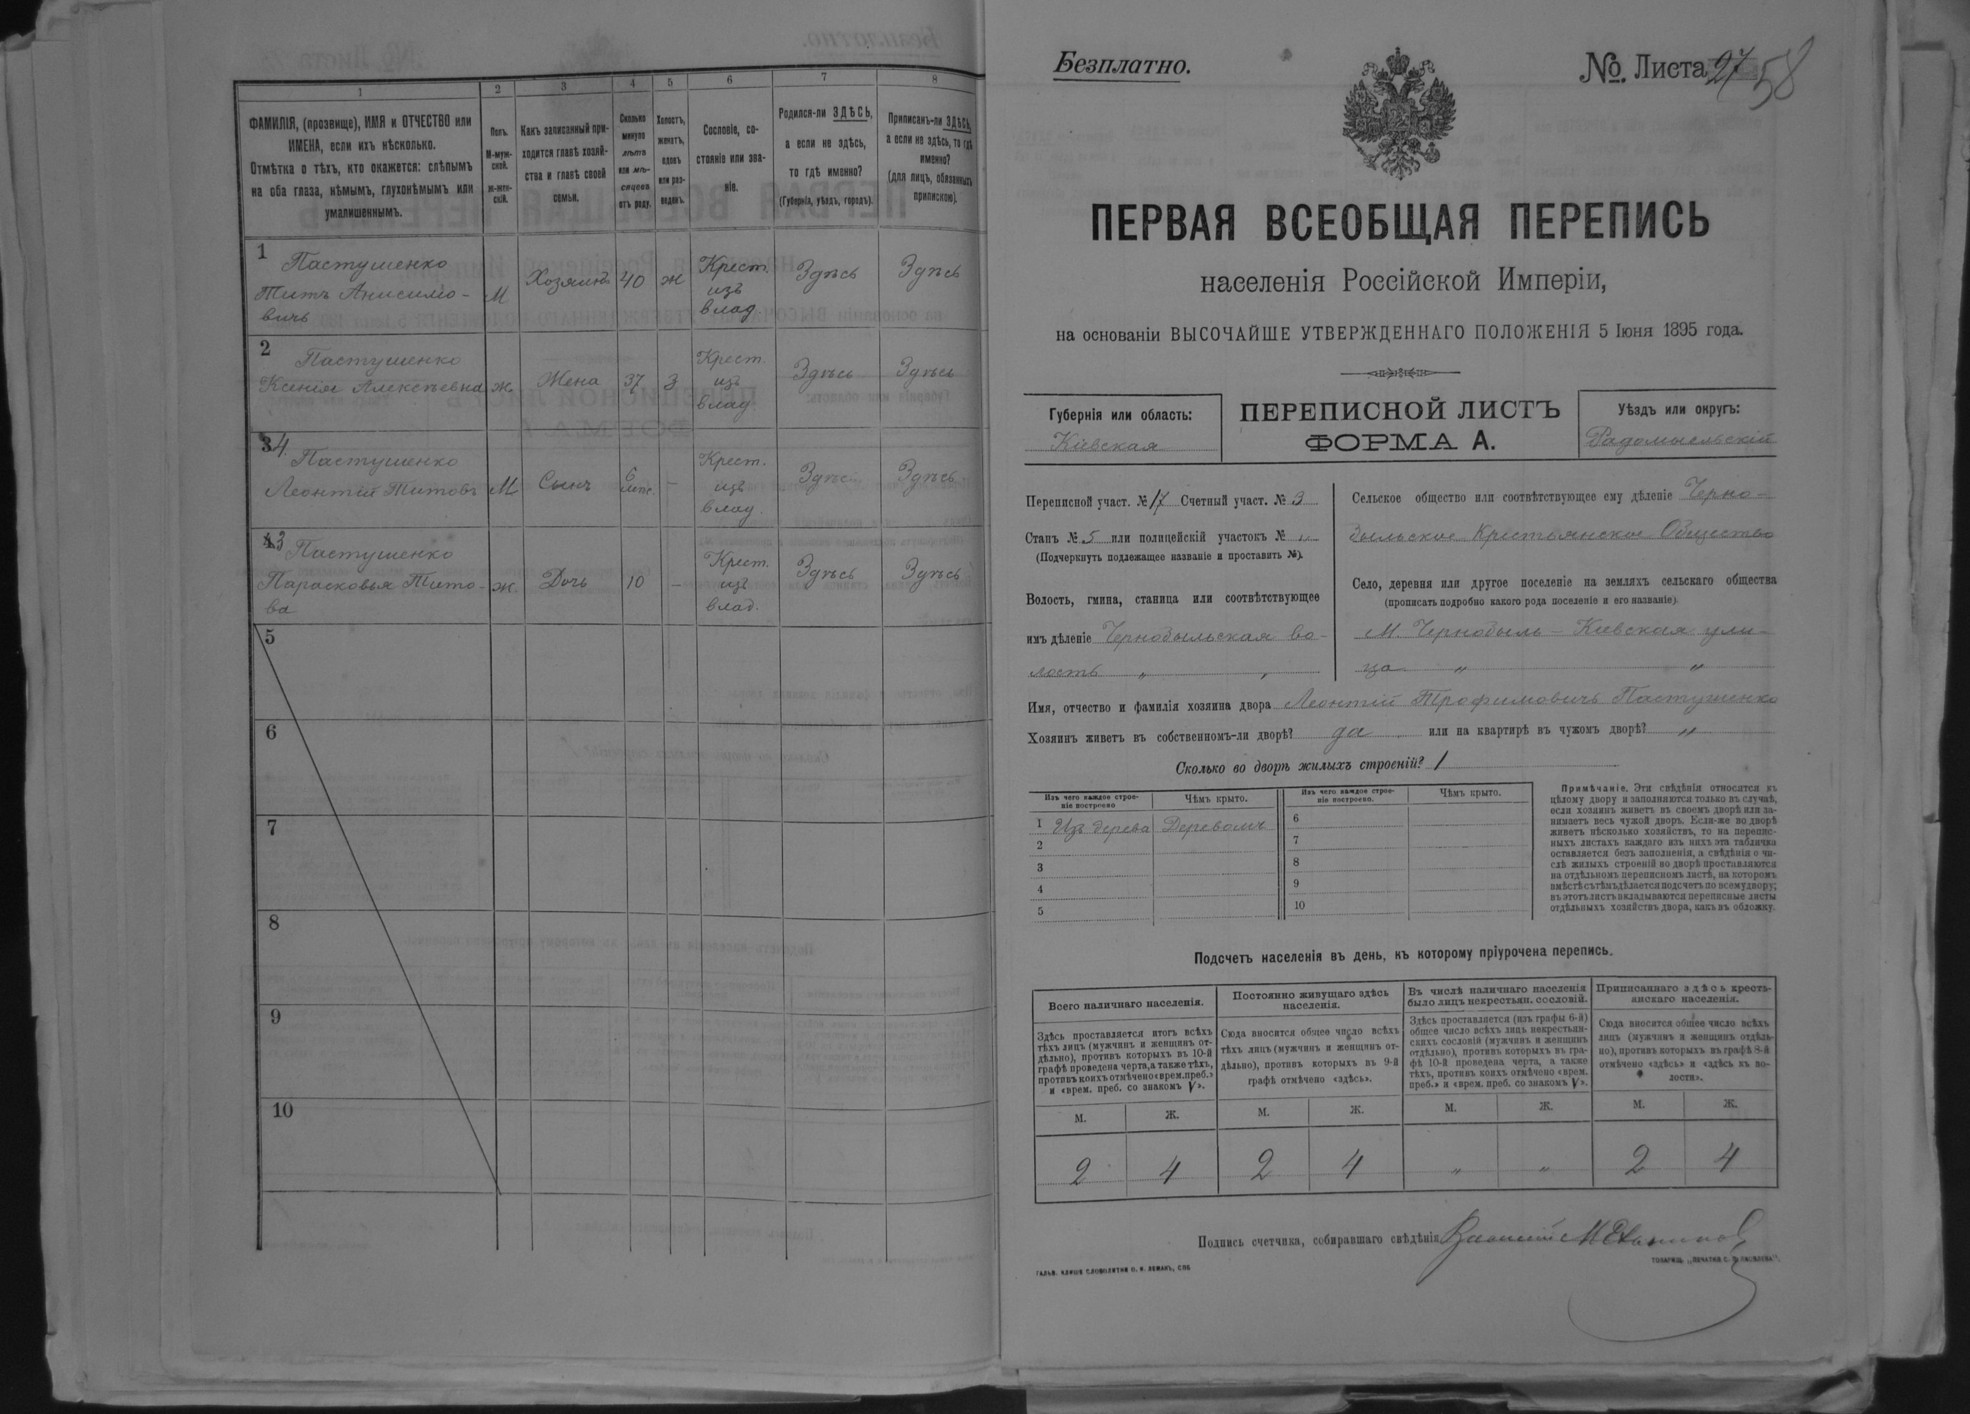 1 2 3 4 5 6 7 8
ФАМИЛІЯ, (прозвище), ИМЯ и ОТЧЕСТВО или
ИМЕНА, если ихъ нѣсколько.
Отмѣтка о тѣхъ, кто окажется: слѣпымъ
на оба глаза, нѣмымъ, глухонѣмымъ или
умалишеннымъ.
Полъ.
М-муж-
ской.
Ж-жен-
скій.
Какъ записанный при-
ходится главѣ хозяй-
ства и главѣ своей
семьи.
Сколько
минуло
лѣтъ
или мѣ-
сяцевъ
отъ роду.
Холостъ,
женатъ,
вдовъ
или раз-
веденъ.
Сословіе, со-
стояніе или зва-
ніе.
Родился-ли ЗДѢСЬ,
а если не здѣсь,
то гдѣ именно?
(Губернія, уѣздъ, городъ).
Приписанъ-ли ЗДѢСЬ,
а если не здѣсь, то гдѣ
именно?
(для лицъ, обязанныхъ
припискою).
1
Пастушенко
Титъ Анисимо-
вичъ
М
Хозяинъ
40
ж
Крест.
изъ
влад.
Здѣсь
Здѣсь
2
Пастушенко
Ксенія Алексѣевна
ж
Жена
37
З
Крест.
изъ
влад.
Здѣсь
Здѣсь
3 4
Пастушенко
Леонтій Титовъ
М
Сынъ
6
лѣтъ
-
Крест.
изъ
влад.
Здѣсь
Здѣсь
4 3
Пастушенко
Парасковья Тито-
ва
ж.
Дочь
10
-
Крест.
изъ
влад.
Здѣсь
Здѣсь
5
6
7
8
9
10
Безплатно.
№ Листа 27 58
ПЕРВАЯ ВСЕОБЩАЯ ПЕРЕПИСЬ
населенія Россійской Имперіи,
на основаніи ВЫСОЧАЙШЕ УТВЕРЖДЕННАГО ПОЛОЖЕНІЯ 5 Іюня 1895 года.
Губернія или область:
Кіевская
ПЕРЕПИСНОЙ ЛИСТЪ
ФОРМА А.
Уѣздъ или округъ:
Радомысльскій
Переписной участ. № 17 Счетный участ. № 3
Станъ № 5 или полицейскій участокъ № „
(Подчеркнуть подлежащее названіе и проставить №).
Волость, гмина, станица или соотвѣтствующее
имъ дѣленіе Чернобыльская во-
лость „ „
Сельское общество или соотвѣтствующее ему дѣленіе Черно-
быльское Крестьянское Общество
Село, деревня или другое поселеніе на земляхъ сельскаго общества
(прописать подробно какого рода поселеніе и его названіе)
М. Чернобыль - Кіевская ули-
ца „ „
Имя, отчество и фамилія хозяина двора Леонтій Трофимовичъ Пастушенко
Хозяинъ живетъ въ собственномъ-ли дворѣ? да или на квартирѣ въ чужомъ дворѣ? „
Сколько во дворѣ жилыхъ строеній? 1
Изъ чего каждое строе-
ніе построено
Чѣмъ крыто.
Изъ чего каждое строе-
ніе построено.
Чѣмъ крыто.
1 Изъ дерева Деревомъ 6
2 7
3 8
4 9
5 10
Примѣчаніе. Эти свѣдѣнія относятся къ
цѣлому двору и заполняются только въ случаѣ,
если хозяинъ живетъ въ своемъ дворѣ или за-
нимаетъ весь чужой дворъ. Если-же во дворѣ
живетъ нѣсколько хозяйствъ, то на перепис-
ныхъ листахъ каждаго изъ нихъ эта табличка
оставляется безъ заполненія, а свѣдѣнія о чи-
слѣ жилыхъ строеній во дворѣ проставляются
на отдѣльномъ переписномъ листѣ, на которомъ
вмѣстѣ съ тѣмъ дѣлается подсчетъ по всему двору;
въ этотъ листъ вкладываются переписные листы
отдѣльныхъ хозяйствъ двора, какъ въ обложку.
Подсчетъ населенія въ день, къ которому пріурочена перепись.
Всего наличнаго населенія.
Здѣсь проставляется итогъ всѣхъ
тѣхъ лицъ (мужчинъ и женщинъ от-
дѣльно), противъ которыхъ въ 10-й
графѣ проведена черта, а также тѣхъ,
противъ коихъ отмѣчено «врем. преб.»
и «врем. преб. со знакомъ V».
Постоянно живущаго здѣсь
населенія.
Сюда вносится общее число всѣхъ
тѣхъ лицъ (мужчинъ и женщинъ от-
дѣльно), противъ которыхъ въ 9-й
графѣ отмѣчено «здѣсь».
Въ числѣ наличнаго населенія
было лицъ некрестьян. сословій.
Здѣсь проставляется (изъ графы 6-й)
общее число всѣхъ лицъ некрестьян-
скихъ сословій (мужчинъ и женщинъ
отдѣльно), противъ которыхъ въ гра-
фѣ 10-й проведена черта, а также
тѣхъ, противъ коихъ отмѣчено «врем.
преб.» и «врем. преб. со знакомъ V».
Приписаннаго здѣсь кресть-
янскаго населенія.
Сюда вносится общее число всѣхъ
лицъ (мужчинъ и женщинъ отдѣль-
но), противъ которыхъ въ графѣ 8-й
отмѣчено «здѣсь» и «здѣсь въ во-
лости».
М. Ж. М. Ж. М. Ж. М. Ж.
2 4 2 4 „ „ 2 4
Подпись счетчика, собиравшаго свѣдѣнія
ГАЛЬВ. КЛИШЕ СЛОВОЛИТНИ О. И. ЛЕМАНЪ, СПБ
ТОВАРИЩ. „ПЕЧАТНЯ С. П. ЯКОВЛЕВА“.